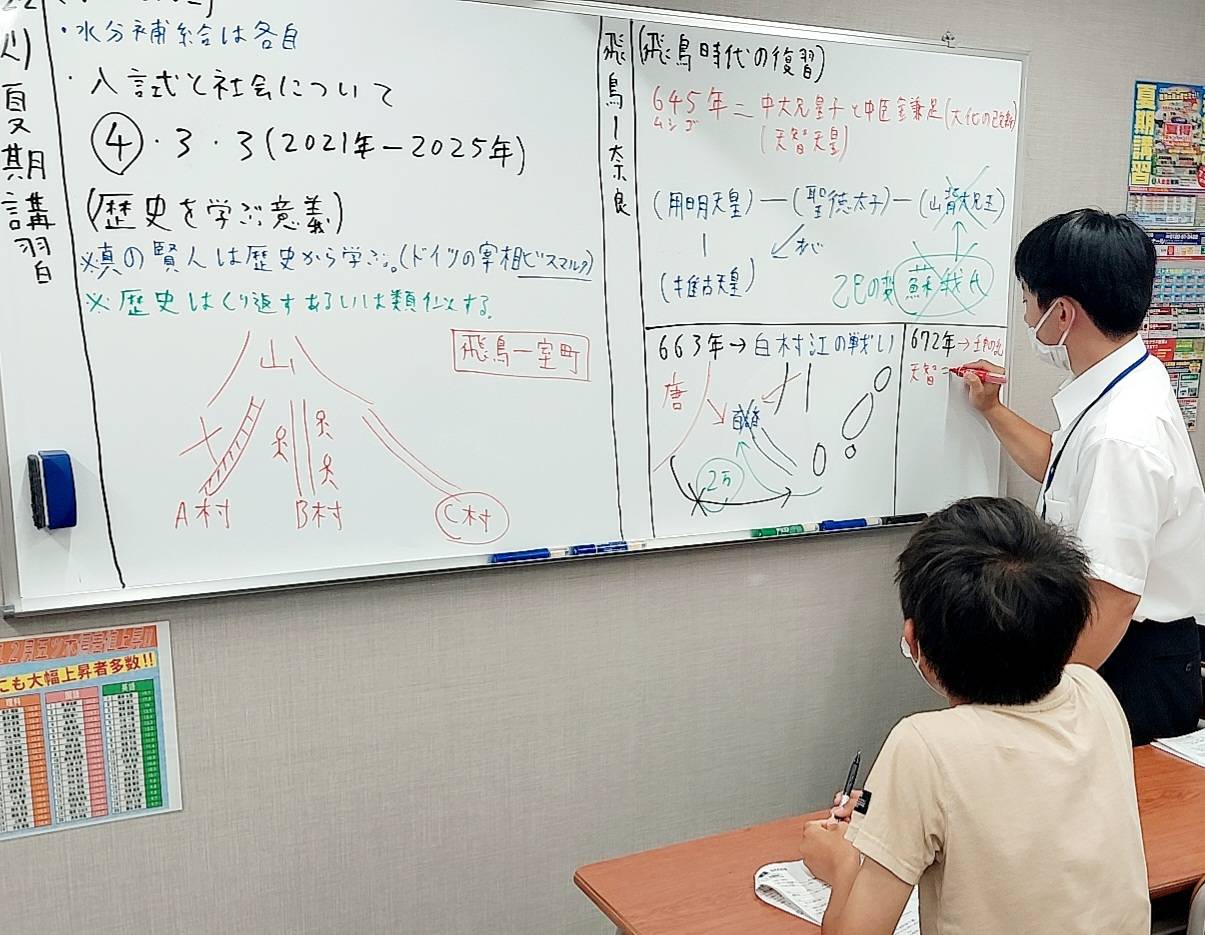 夏期講習
・水分補給は各自
・入試式と社会について
④・3・3(2021年ー2025年)
(歴史を学ぶ意義)
※真の賢人は歴史から学ぶ。(ドイツの宰相ビスマルク)
※歴史はくり返すあるいは類似する。
飛鳥ー室町
山
A村
B村
C村
飛鳥ー奈良
(飛鳥時代の復習)
645年=中大兄皇子と中臣鎌足(大化の改新)
ムシゴ
(天智天皇)
(用明天皇)ー(聖徳太子)ー(山背大兄王)
(推古天皇)
乙巳の変
蘇我氏
663年→白村江の戦い
唐
百済
2万
672年→壬申の乱
天智=
夏期講習
大幅上昇者多数!!
理科
国語
英語